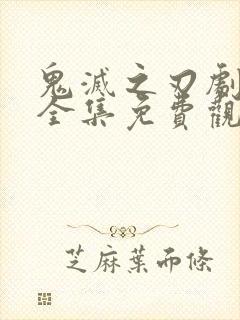 鬼滅之刃劇
全集免費觀
芝麻葉而條